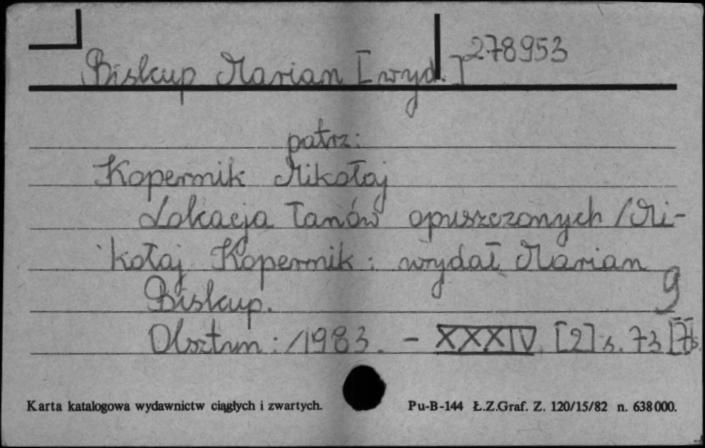 278953
Biskup Marian [wyd.]
patrz:
Kopernik Mikołaj
Lokacja łanów opuszczonych / Mi-
kołaj Kopernik : wydał Marian
Biskup. 9
Olsztyn : 1983. - XXXIV, [2] s. 73 [7] s.
Karta katalogowa wydawnictw ciągłych i zwartych. Pu-B-144 Ł.Z.Graf. Z. 120/15/82 n. 638000.